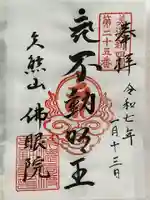 奉拝
令和七年
一月十三日
第二十五番
不動明王
熊山
佛眼院